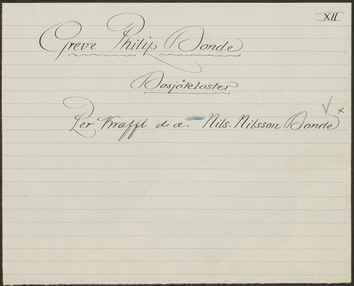 XII
Greve Philip Bonde
Bosjökloster
Per Krafft d.ä. Nils Nilsson Bonde x